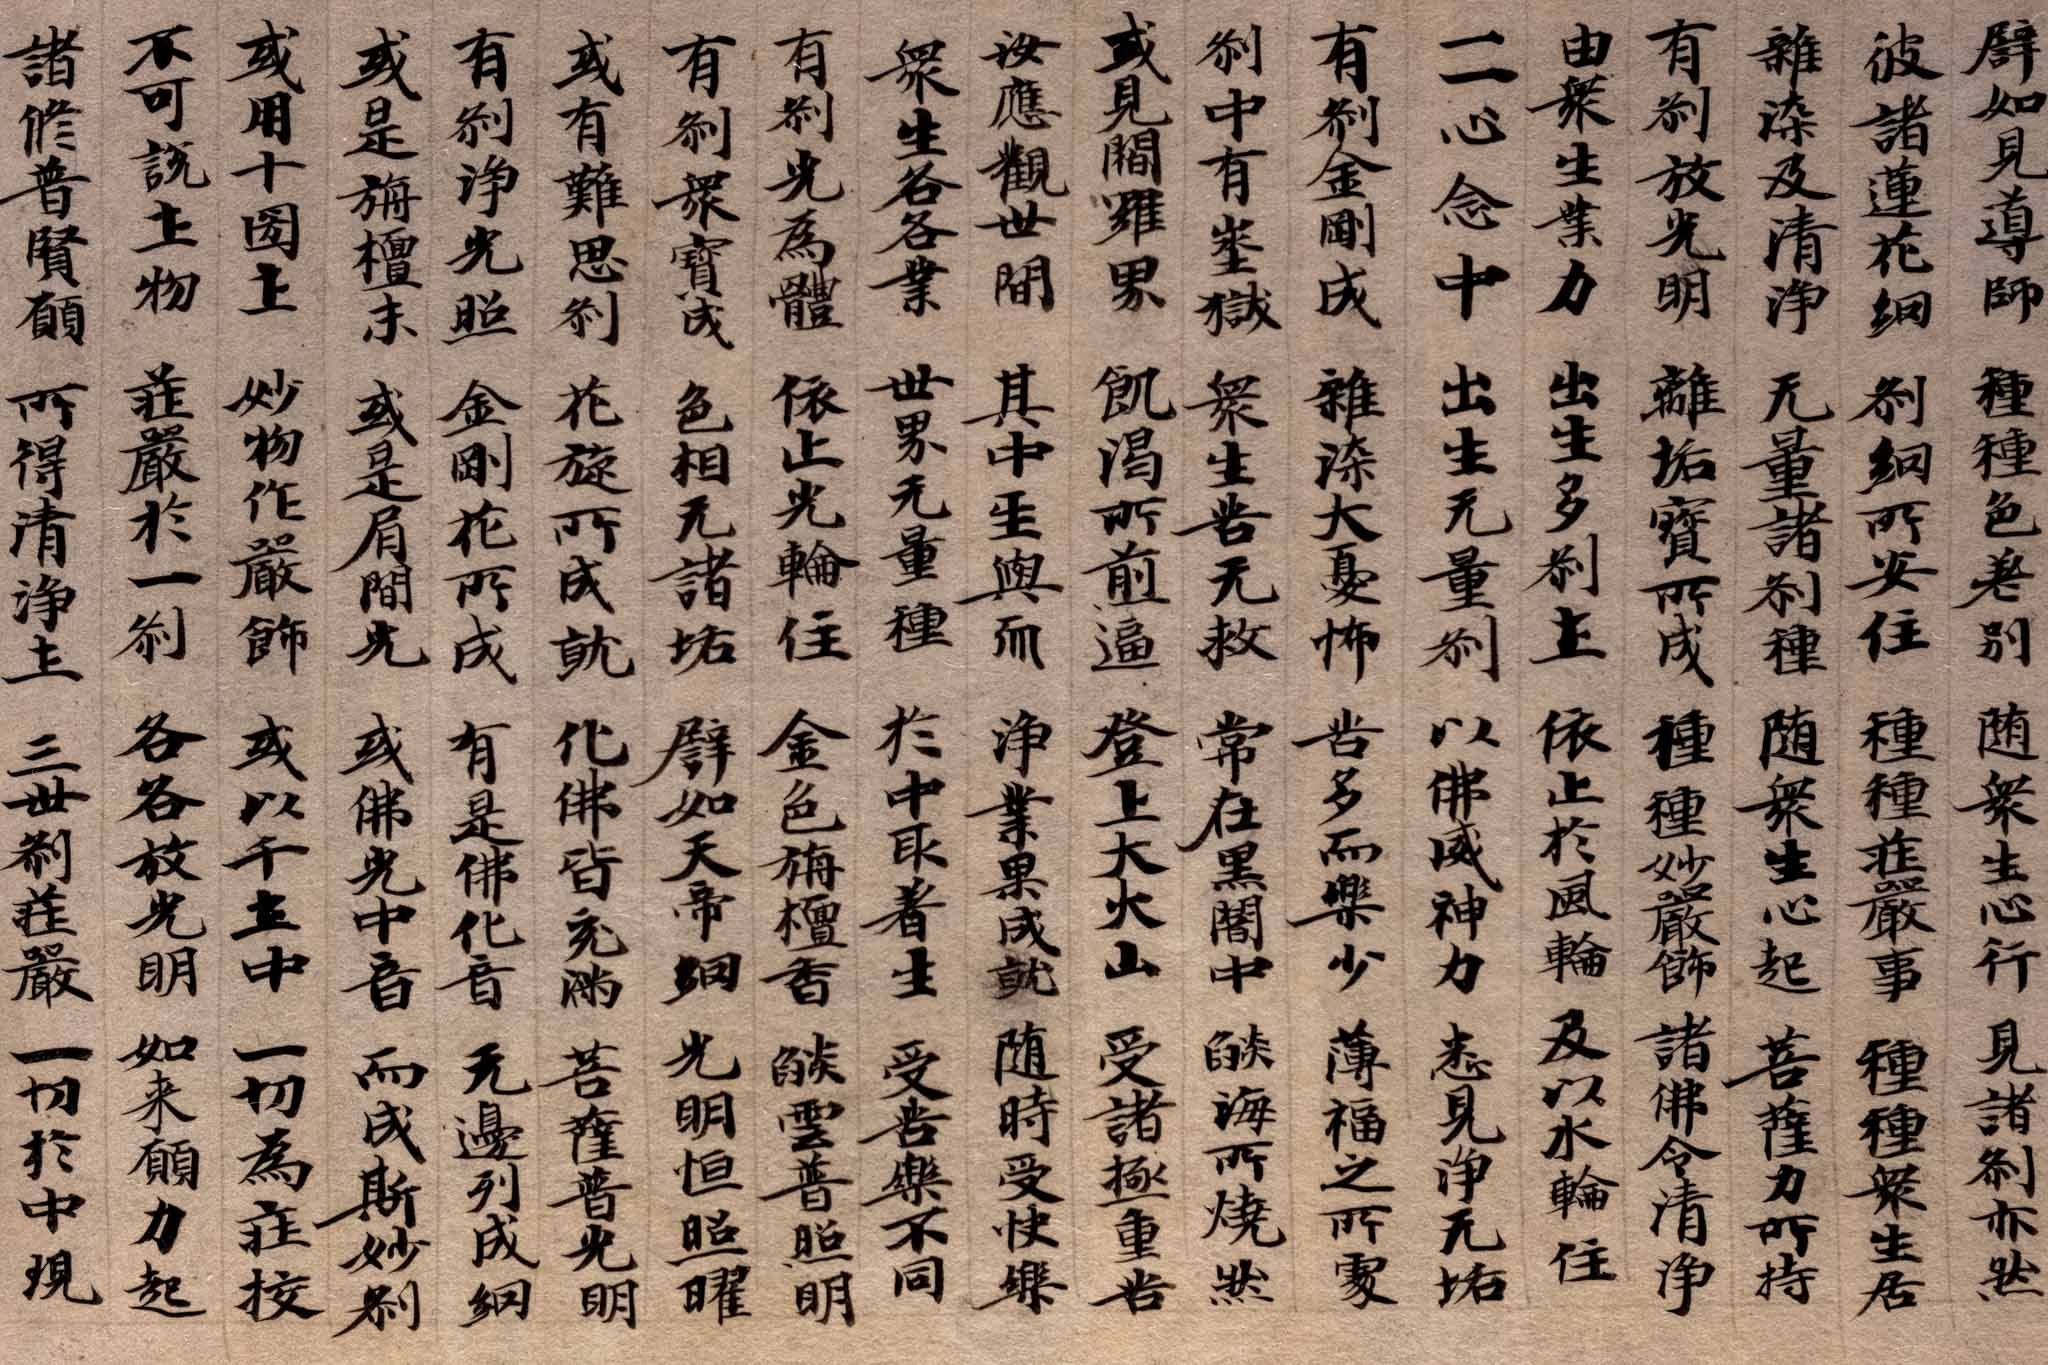 譬如見導師 種種色差別 随衆生心行 見諸刹亦然
彼諸蓮花網 刹網所安住 種種莊嚴事 種種衆生居
雜染及清淨 无量諸刹種 随衆生心起 菩薩力所持
有刹放光明 離垢寶所成 種種妙嚴飾 諸佛令清淨
由衆生業力 出生多刹土 依止於風輪 及以水輪住
一一心念中 出生无量刹 以佛威神力 悉見淨无垢
有刹金剛成 雜染大憂怖 苦多而樂少 薄福之所處
刹中有地獄 衆生苦无救 常在黑闇中 焰海所燒然
或見閻羅界 飢渴所煎逼 登上大火山 受諸極重苦
汝應觀世間 其中生與而 淨業果成就 随時受快樂
衆生各各業 世界无量種 於中取著生 受苦樂不同
有刹光為體 依止光輪住 金色旃檀香 焰雲普照明
有刹衆寶成 色相无諸垢 譬如天帝網 光明恒照曜
或有難思刹 花旋所成就 化佛皆充滿 菩薩普光明
有刹淨光照 金剛花所成 有是佛化音 无邊列成網
或是旃檀末 或是眉間光 或佛光中音 而成斯妙刹
或用十國土 妙物作嚴飾 或以千土中 一切為莊挍
不可說土物 莊嚴於一刹 各各放光明 如来願力起
諸修普賢願 所得清淨土 三世刹莊嚴 一切於中現